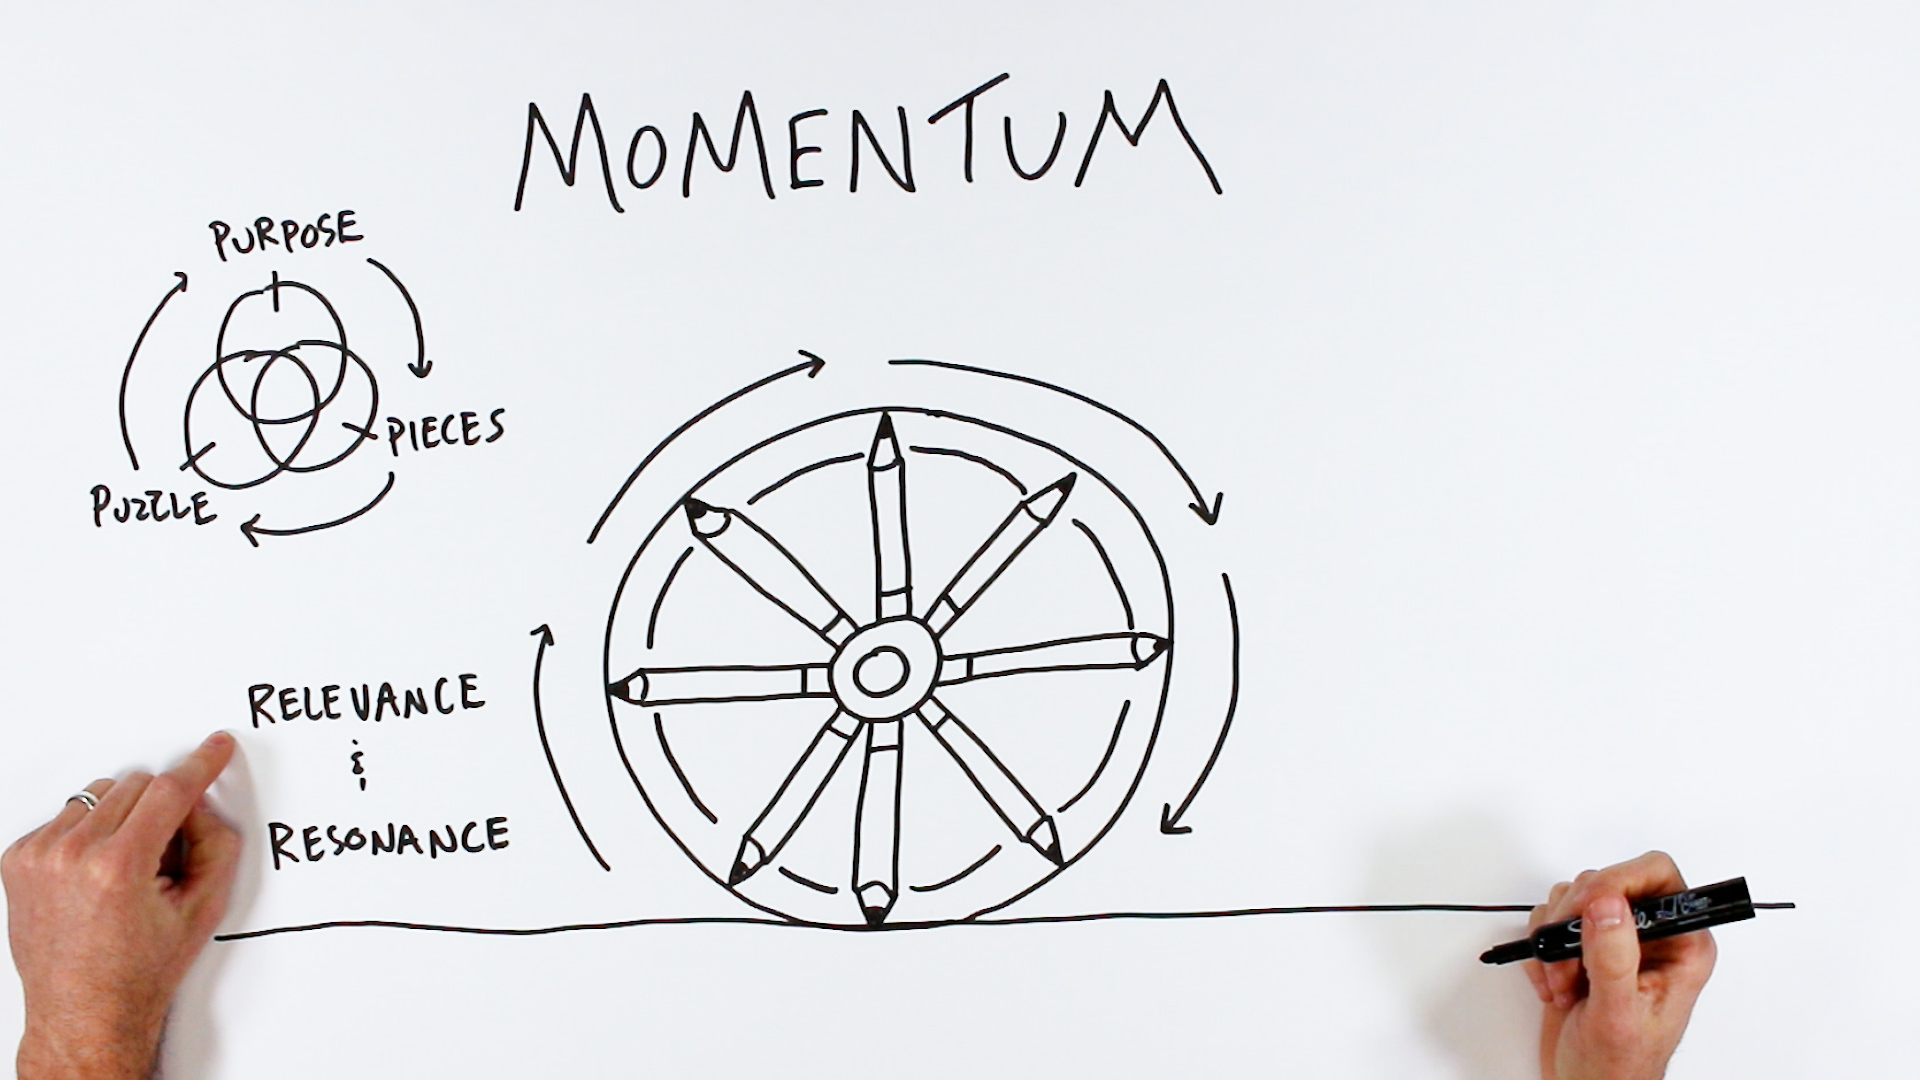 MOMENTUM
PURPOSE
PIECES
PUZZLE
RELEVANCE
&
RESONANCE